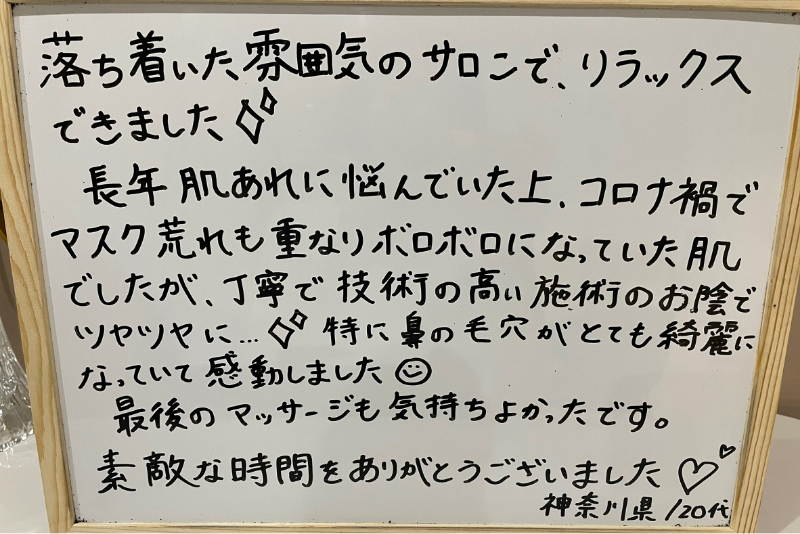 落ち着いた雰囲気のサロンで、リラックス
できました
長年肌あれに悩んでいた上、コロナ禍で
マスク荒れも重なりボロボロになっていた肌
でしたが、丁寧で技術の高い施術のお陰で
ツヤツヤに…特に鼻の毛穴がとても綺麗に
なっていて感動しました
最後のマッサージも気持ちよかったです。
素敵な時間をありがとうございました♡
神奈川県/20代